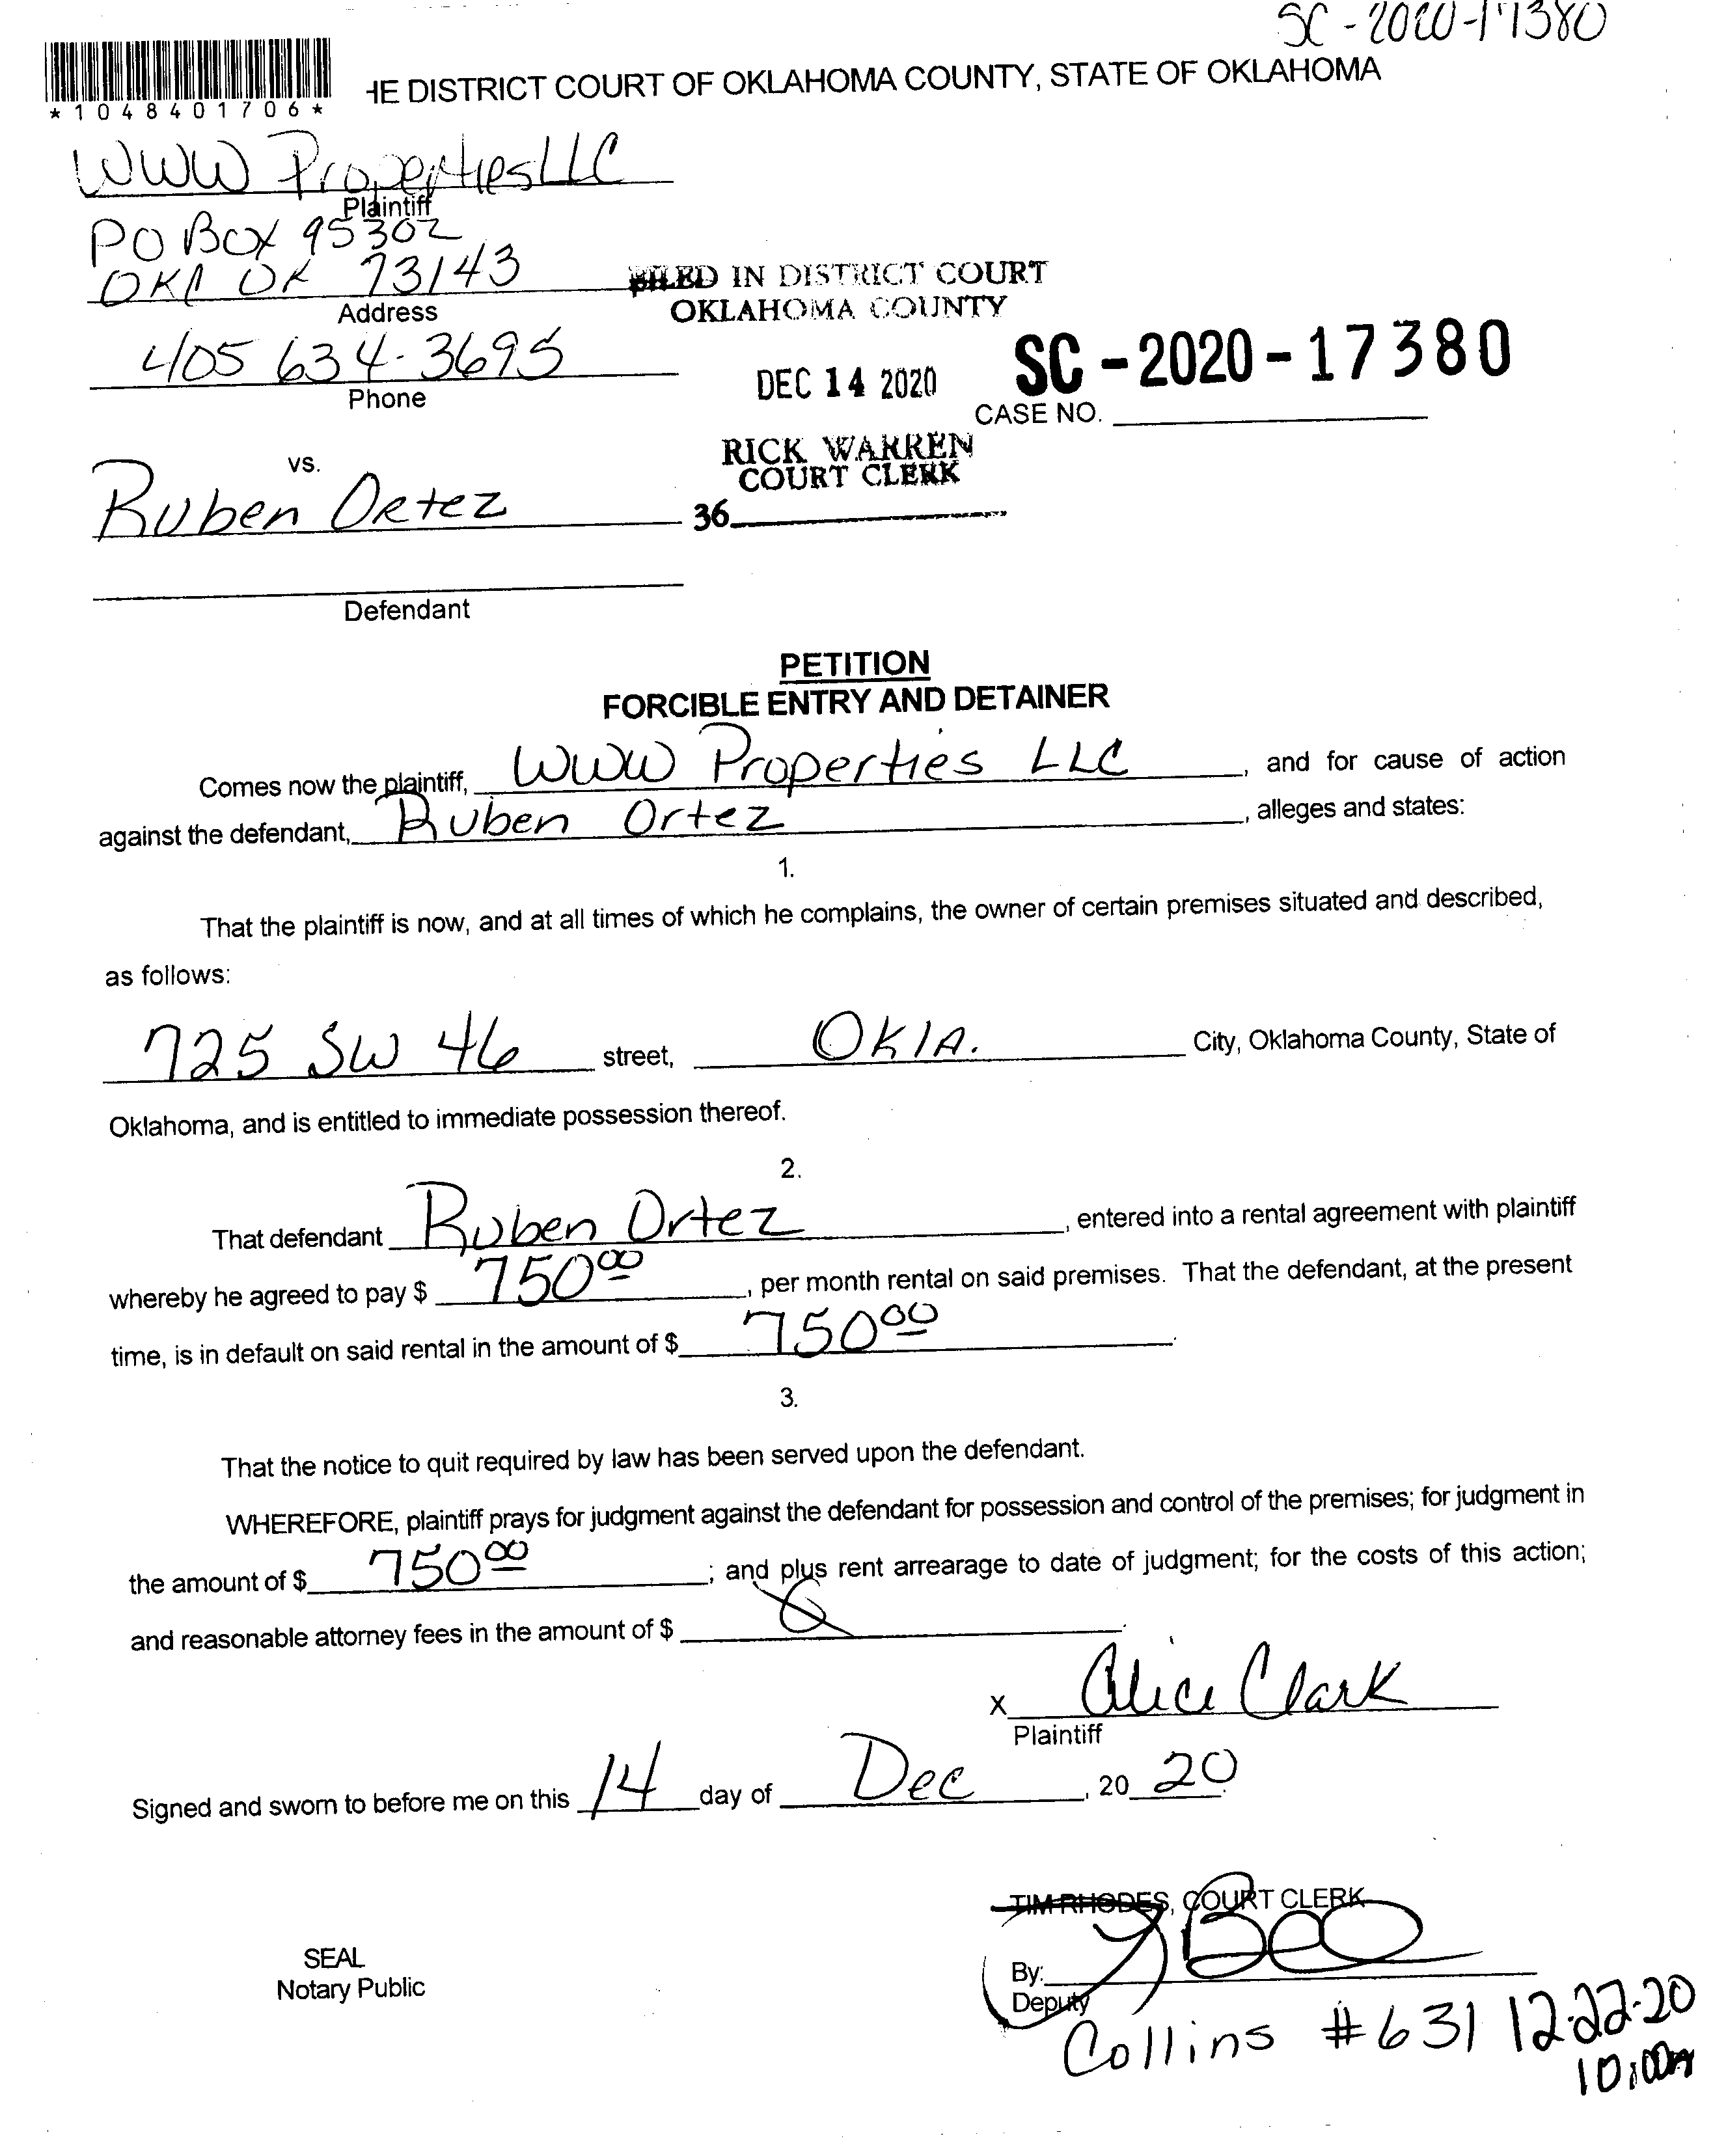 SC-2020-17380
HE DISTRICT COURT OF OKLAHOMA COUNTY, STATE OF OKLAHOMA
*1048401706*
WWW Properties LLC
Plaintiff
PO Box 95302
OKC OK 73143
Address
FILED IN DISTRICT COURT
OKLAHOMA COUNTY
405 634-3695
Phone
DEC 14 2020
SC-2020-17380
CASE NO.
RICK WARREN
COURT CLERK
36
vs.
Ruben Ortez
Defendant
PETITION
FORCIBLE ENTRY AND DETAINER
Comes now the plaintiff, WWW Properties LLC, and for cause of action
against the defendant, Ruben Ortez, alleges and states:
1.
That the plaintiff is now, and at all times of which he complains, the owner of certain premises situated and described,
as follows:
725 SW 46 street, Okla. City, Oklahoma County, State of
Oklahoma, and is entitled to immediate possession thereof.
2.
That defendant Ruben Ortez, entered into a rental agreement with plaintiff
whereby he agreed to pay $ 750 00, per month rental on said premises. That the defendant, at the present
time, is in default on said rental in the amount of $ 750 00.
3.
That the notice to quit required by law has been served upon the defendant.
WHEREFORE, plaintiff prays for judgment against the defendant for possession and control of the premises; for judgment in
the amount of $ 750 00; and plus rent arrearage to date of judgment; for the costs of this action;
and reasonable attorney fees in the amount of $ 0.
X Alice Clark
Plaintiff
Signed and sworn to before me on this 14 day of Dec, 20 20
TIM RHODES, COURT CLERK
SEAL
Notary Public
By:
Deputy
Collins #631 12-22-20
10:00